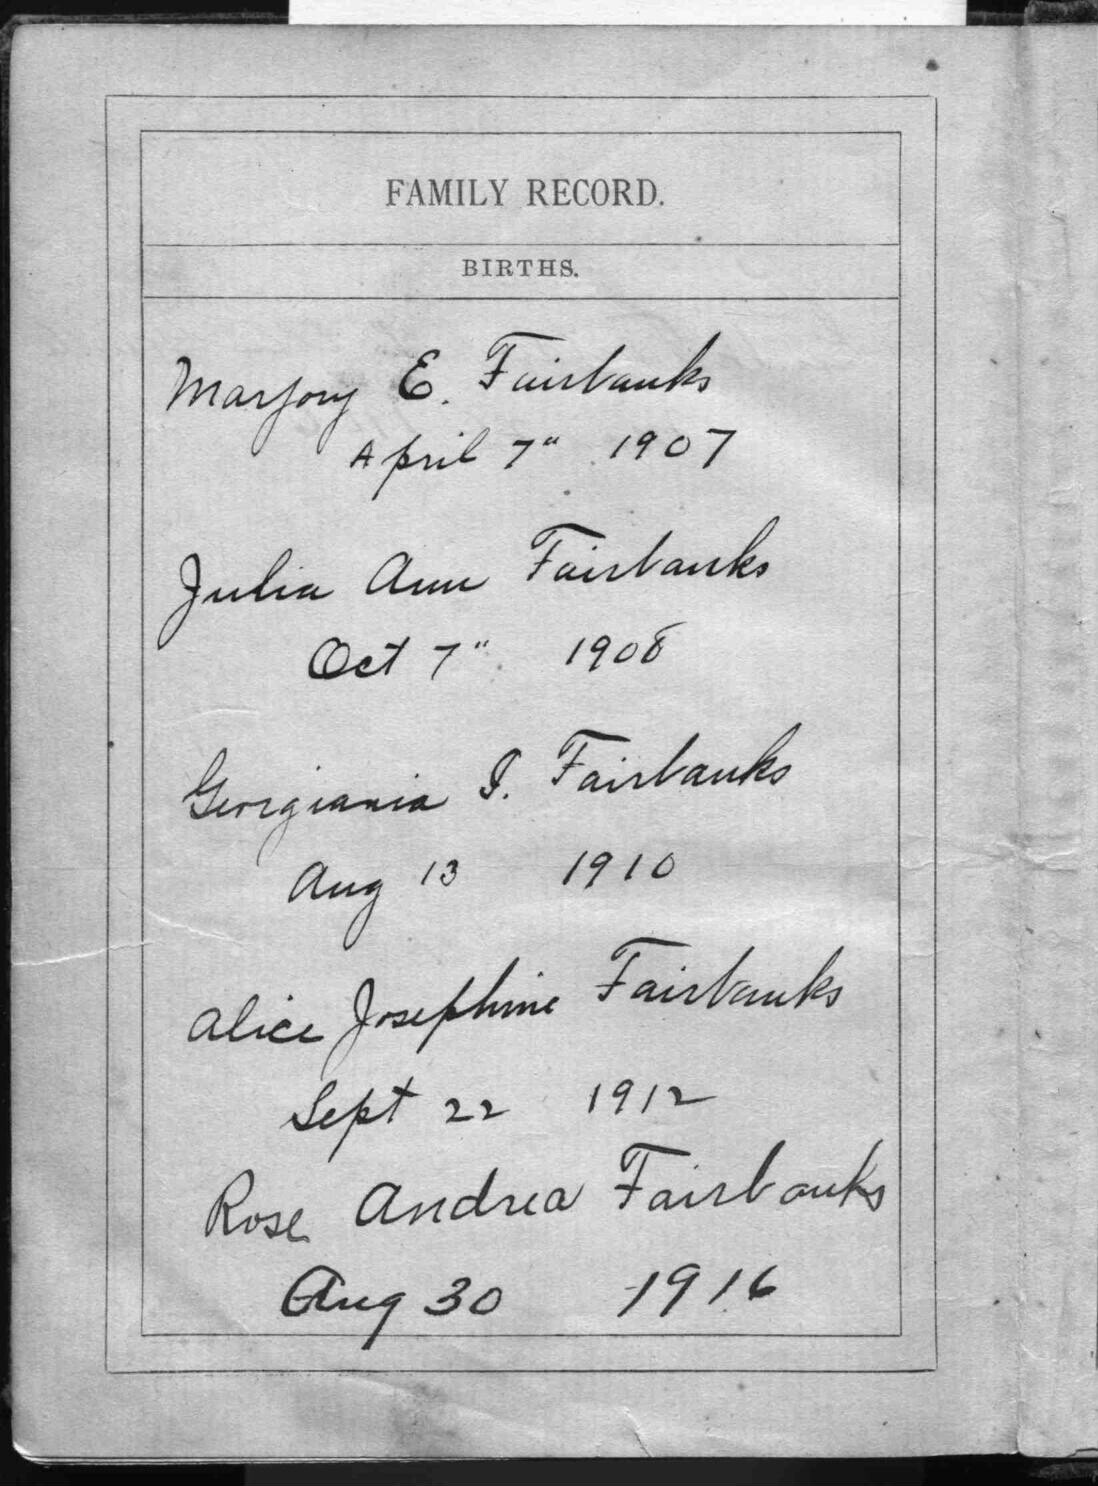 FAMILY RECORD.
BIRTHS.
Marjory E. Fairbanks
April 7" 1907
Julia Ann Fairbanks
Oct 7" 1908
Georgiania I. Fairbanks
Aug 13 1910
Alice Josephine Fairbanks
Sept 22 1912
Rose Andrea Fairbanks
Aug 30 1916